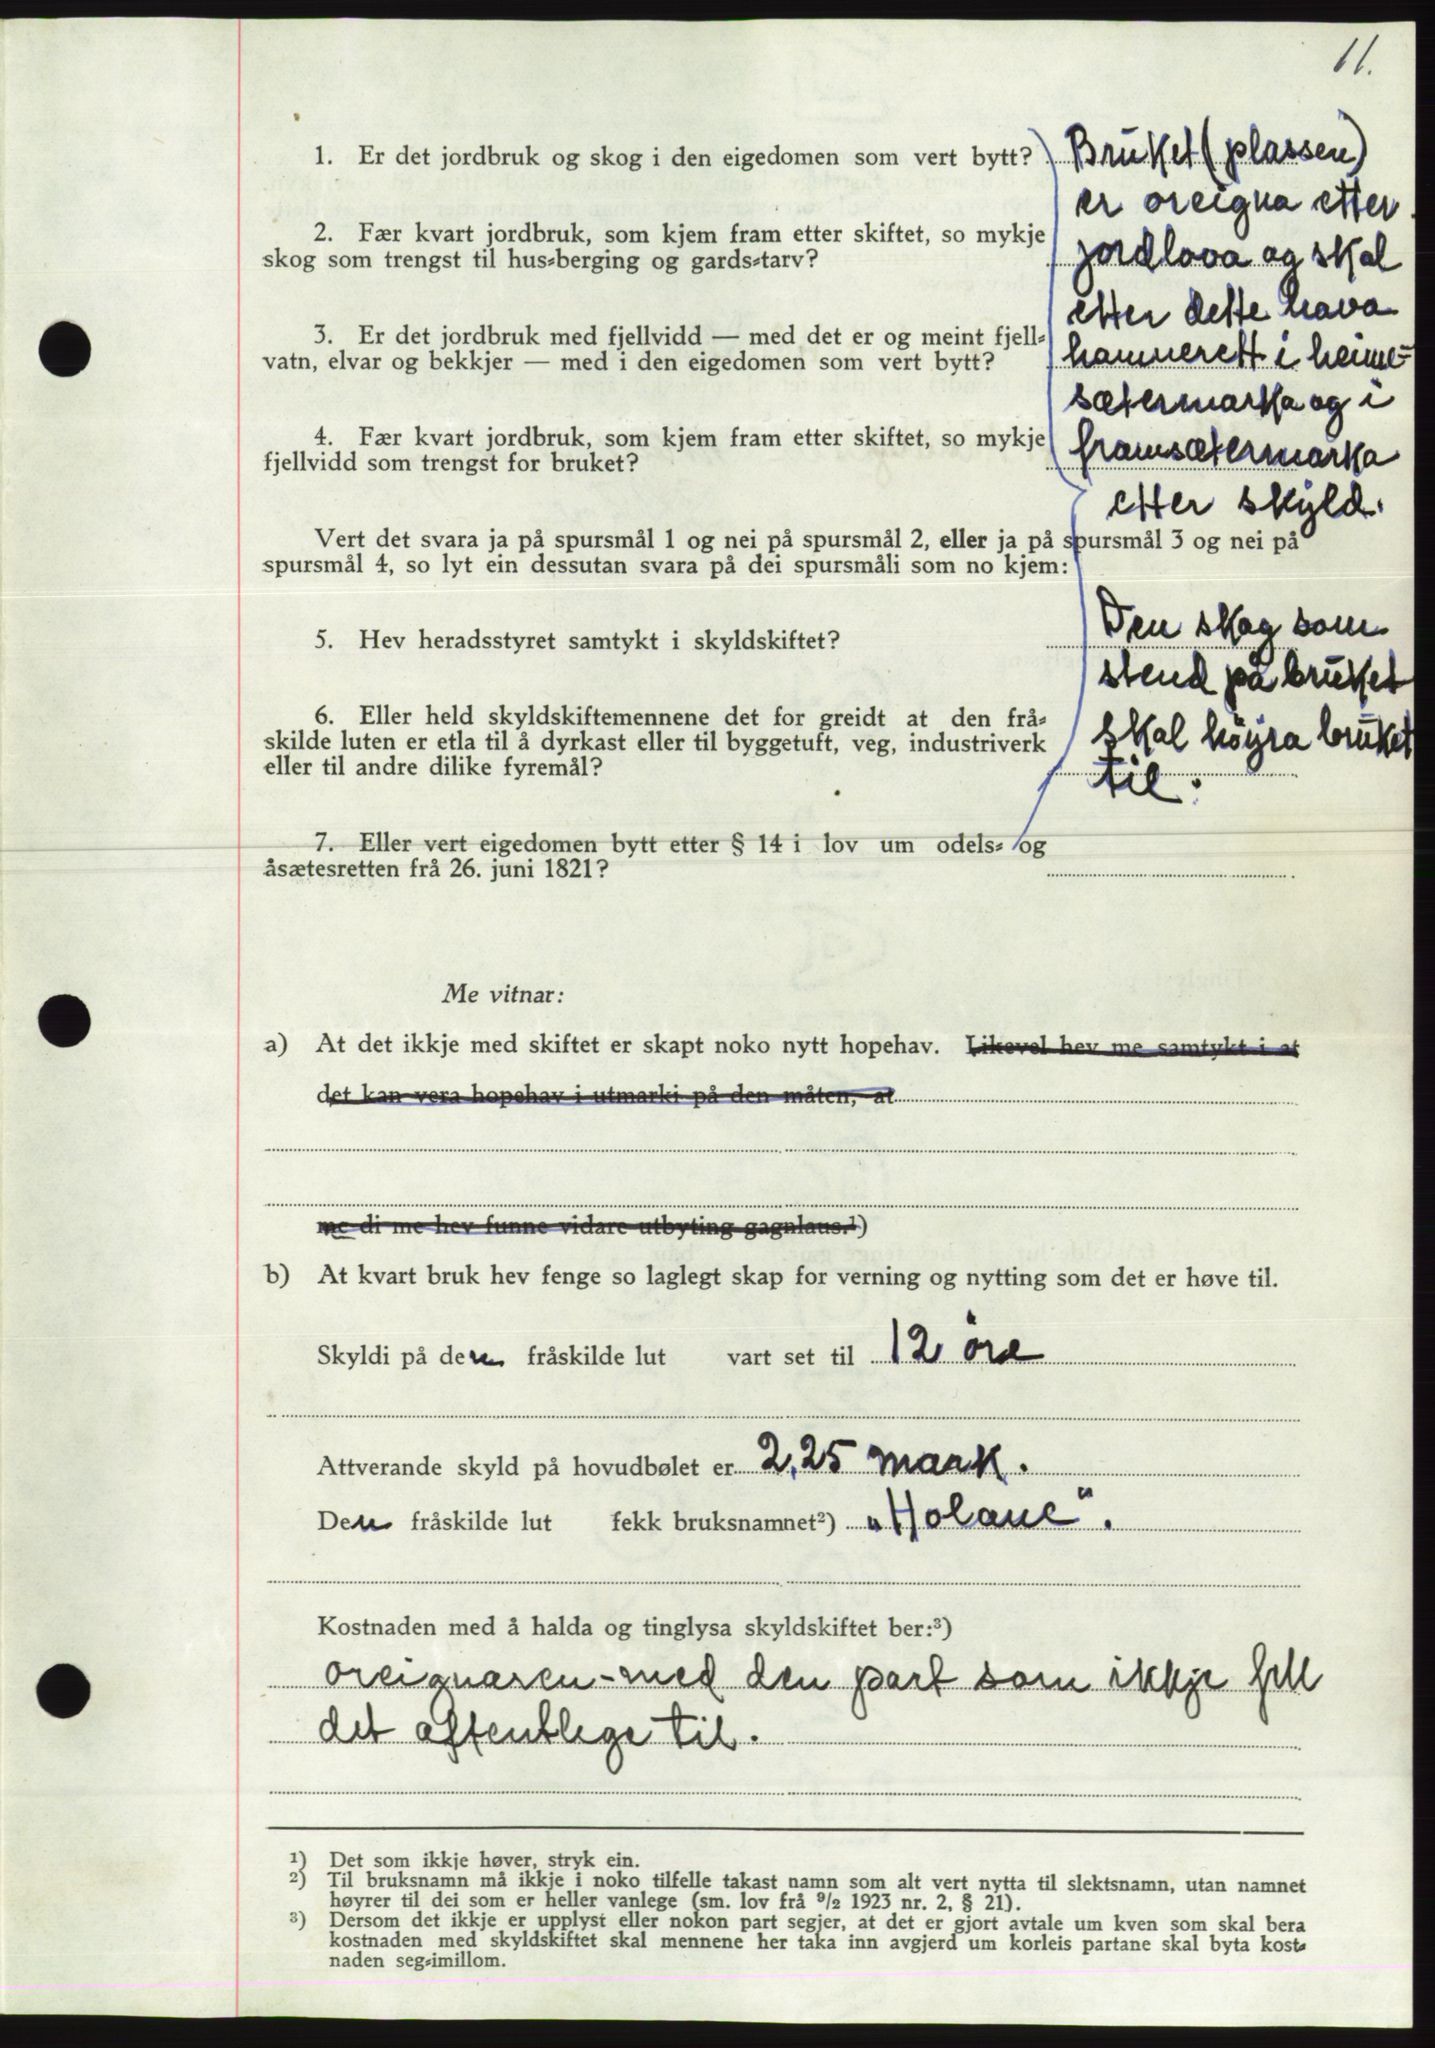 11.
1. Er det jordbruk og skog i den eigedomen som vert bytt?
Bruket (plassen)
er oreigna etter
2. Fær kvart jordbruk, som kjem fram etter skiftet, so mykje
skog som trengst til hus-berging og gards-tarv?
jordlova og skal
etter dette hava
3. Er det jordbruk med fjellvidd — med det er og meint fjell-
vatn, elvar og bekkjer — med i den eigedomen som vert bytt?
hamnerett i heime-
sætermarka og i
4. Fær kvart jordbruk, som kjem fram etter skiftet, so mykje
fjellvidd som trengst for bruket?
framsætermarka
etter skyld.
Vert det svara ja på spursmål 1 og nei på spursmål 2, eller ja på spursmål 3 og nei på
spursmål 4, so lyt ein dessutan svara på dei spursmåli som no kjem:
5. Hev heradsstyret samtykt i skyldskiftet?
Den skog som
stend på bruket
6. Eller held skyldskiftemennene det for greidt at den frå-
skilde luten er etla til å dyrkast eller til byggetuft, veg, industriverk
eller til andre dilike fyremål?
skal höyra bruket
til.
7. Eller vert eigedomen bytt etter § 14 i lov um odels- og
åsætesretten frå 26. juni 1821?
Me vitnar:
a) At det ikkje med skiftet er skapt noko nytt hopehav. Likevel hev me samtykt i at
det kan vera hopehav i utmarki på den måten, at
me di me hev funne vidare utbyting gagnlaus.¹)
b) At kvart bruk hev fenge so laglegt skap for verning og nytting som det er høve til.
Skyldi på den fråskilde lut vart set til 12 öre
Attverande skyld på hovudbølet er 2,25 mark.
Den fråskilde lut fekk bruksnamnet²) „Holane".
Kostnaden med å halda og tinglysa skyldskiftet ber:³)
oreignaren - med den part som ikkje fell
det offentlege til.
¹) Det som ikkje høver, stryk ein.
²) Til bruksnamn må ikkje i noko tilfelle takast namn som alt vert nytta til slektsnamn, utan namnet
høyrer til dei som er heller vanlege (sm. lov frå ⁹/₂ 1923 nr. 2, § 21).
³) Dersom det ikkje er upplyst eller nokon part segjer, at det er gjort avtale um kven som skal bera
kostnaden med skyldskiftet skal mennene her taka inn avgjerd um korleis partane skal byta kost-
naden seg-imillom.